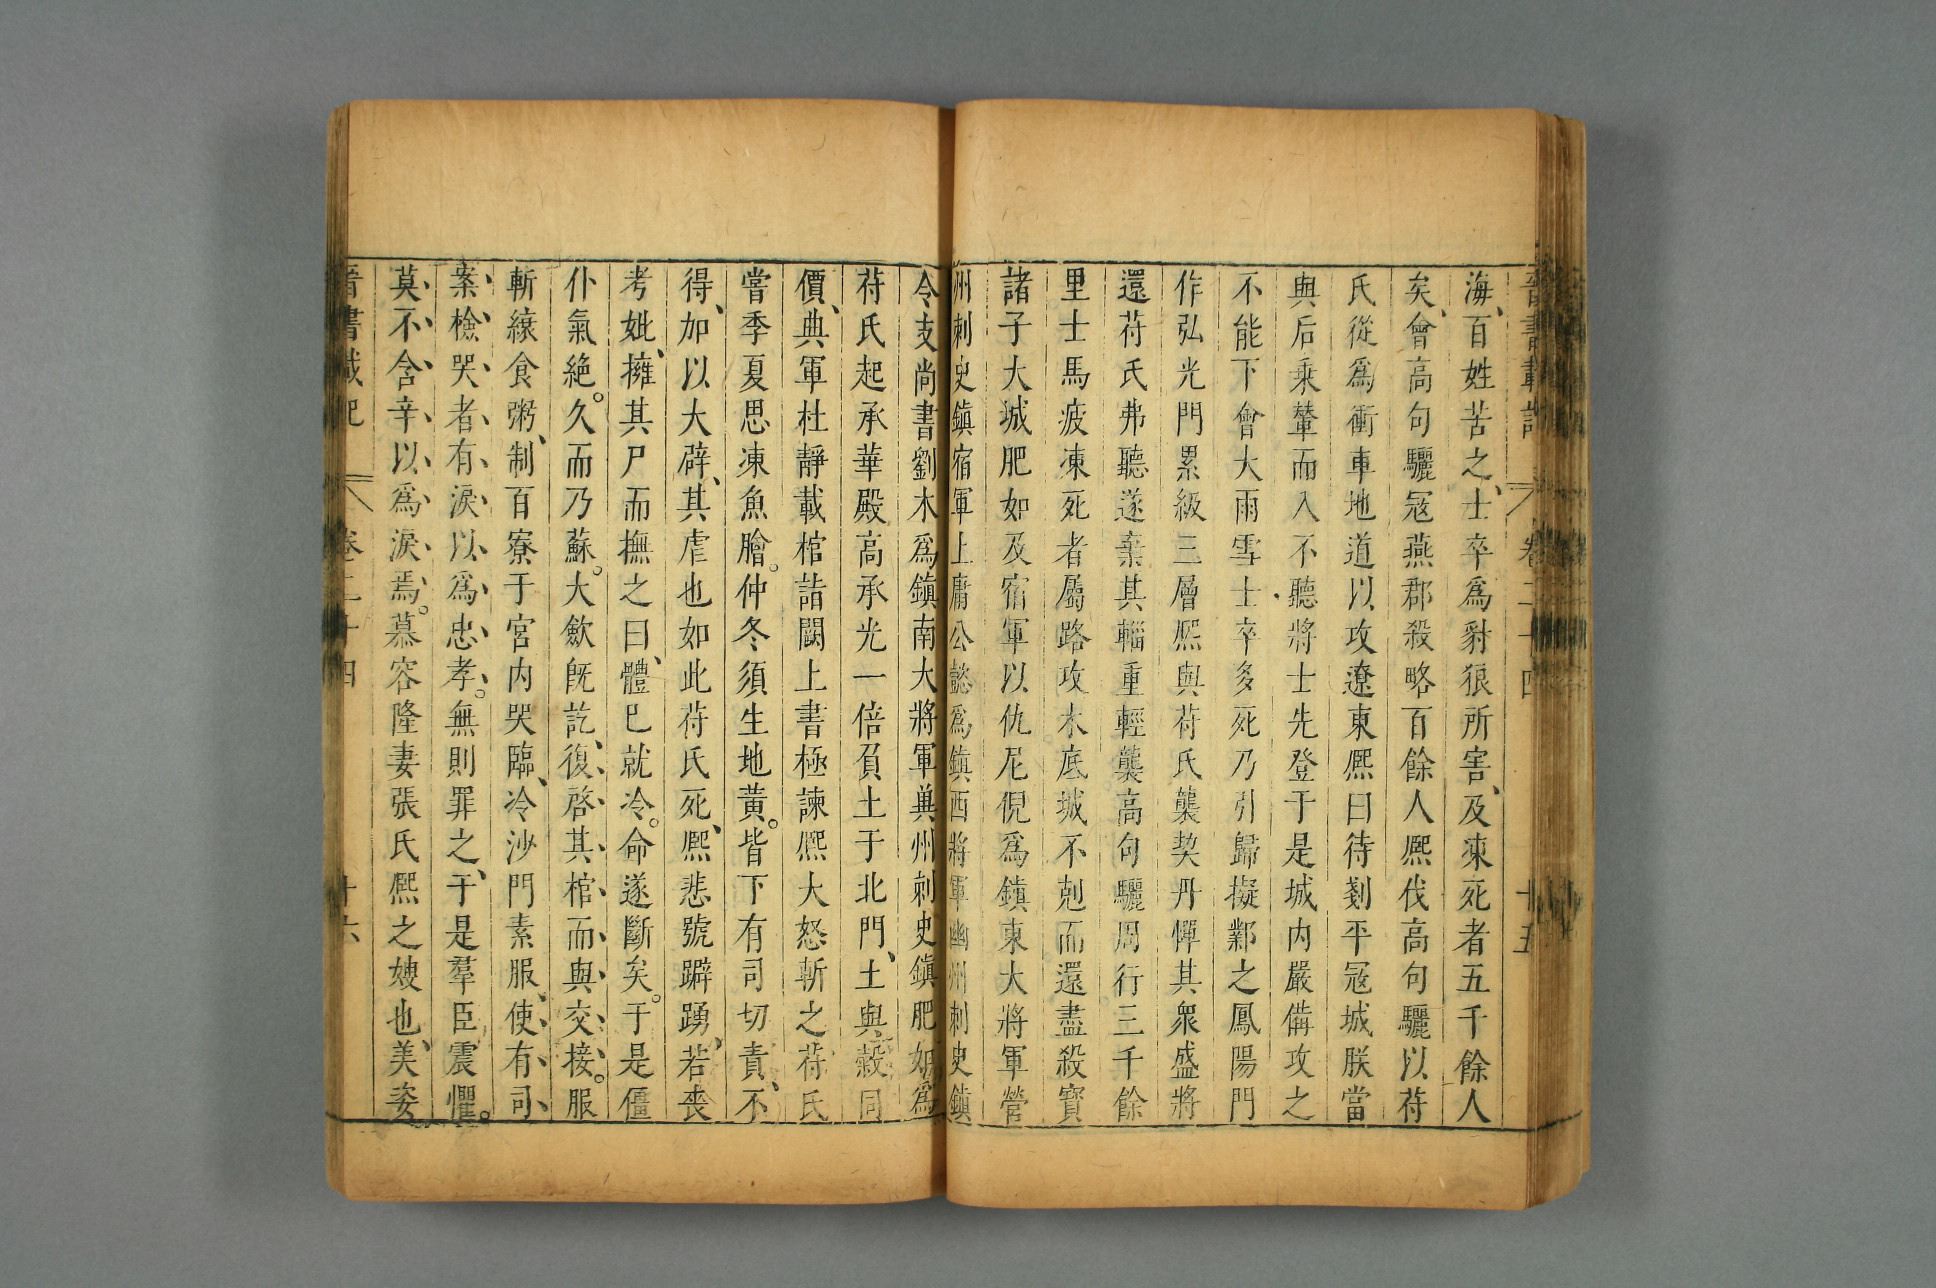 晉書載記 卷二十四 十五
海、百姓苦之、士卒爲豺狼所害、及凍死者五千餘人
矣、會高句驪冦燕郡殺略百餘人熈伐高句驪以苻
氏從爲衝車地道以攻遼東熈曰待剗平冦城朕當
與后乗輦而入不聽將士先登于是城内嚴備攻之
不能下會大雨雪士卒多死乃引歸擬鄴之鳳陽門
作弘光門累級三層熈與苻氏襲契丹憚其衆盛將
還苻氏弗聽遂棄其輜重輕襲高句驪周行三千餘
里士馬疲凍死者屬路攻木底城不剋而還盡殺寳
諸子大城肥如及宿軍以仇尼倪爲鎮東大將軍營
州刺史鎮宿軍上庸公懿爲鎮西將軍幽州刺史鎮
令支尚書劉木爲鎮南大將軍兾州刺史鎮肥如爲
苻氏起承華殿高承光一倍負土于北門、土與穀同
價、典軍杜靜載棺詣闕上書極諫熈大怒斬之苻氏
嘗季夏思凍魚膾。仲冬須生地黄。皆下有司切責、不
得、加以大辟、其虐也如此苻氏死、熈悲號躃踴、若喪
考妣、擁其尸而撫之曰、體已就冷。命遂斷矣。于是僵
仆氣絶。久而乃蘇。大斂旣訖、復啓其棺而與交接。服
斬縗食粥、制百寮于宮内哭臨、冷沙門素服、使有司
案檢哭者有淚以爲忠孝。無則罪之、于是羣臣震懼。
莫不含辛以爲淚焉。慕容隆妻張氏熈之嫂也、美姿
晉書載記 卷二十四 十六